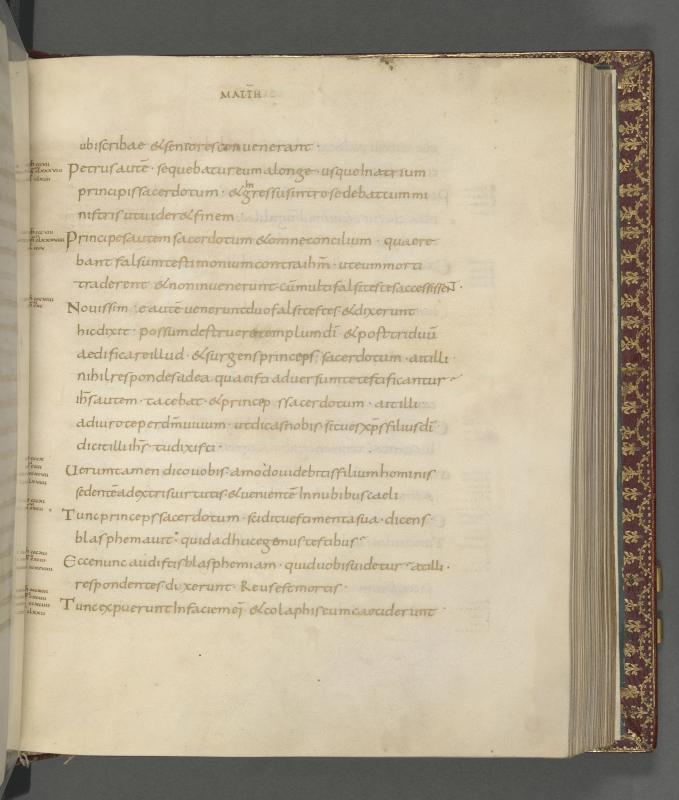 MATTH
ubi scribae & seniores convenerant ·
Petrus autē · sequebatur eum a longe · usque In atrium
principis sacerdotum · & Ingressus intro sedebat cum mi
nistris ut vider& finem
Principes autem sacerdotum & omne concilium · quaere
bant falsum testimonium contra ihm̄ · ut eum morti
traderent & non invenerunt cū multi falsi testes accessissent ·
Novissime autē venerunt duo falsi testes & dixerunt
hic dixit · possum destruere templum dī & post triduū
aedificare illud · & surgens princeps sacerdotum · ait illi ·
nihil respondes ad ea quae isti adversum te testificantur
ihs̄ autem · tacebat · & princeps sacerdotum · ait illi
adiuro te per dm̄ vivum · ut dicas nobis · si tu es xp̄s filius dī ·
dicit illi ihs̄ · tu dixisti ·
Verumtamen dico vobis · amodo videbitis filium hominis
sedentē a dextris virtutis & venientē In nubibus caeli
Tunc princeps sacerdotum · scidit vestimenta sua · dicens
blasphemavit · quid adhuc egemus testibus
Ecce nunc audistis blasphemiam · quid vobis videtur · at illi ·
respondentes dixerunt · Reus est mortis ·
Tunc expuerunt In faciem eī · & colaphis eum caeciderunt ·